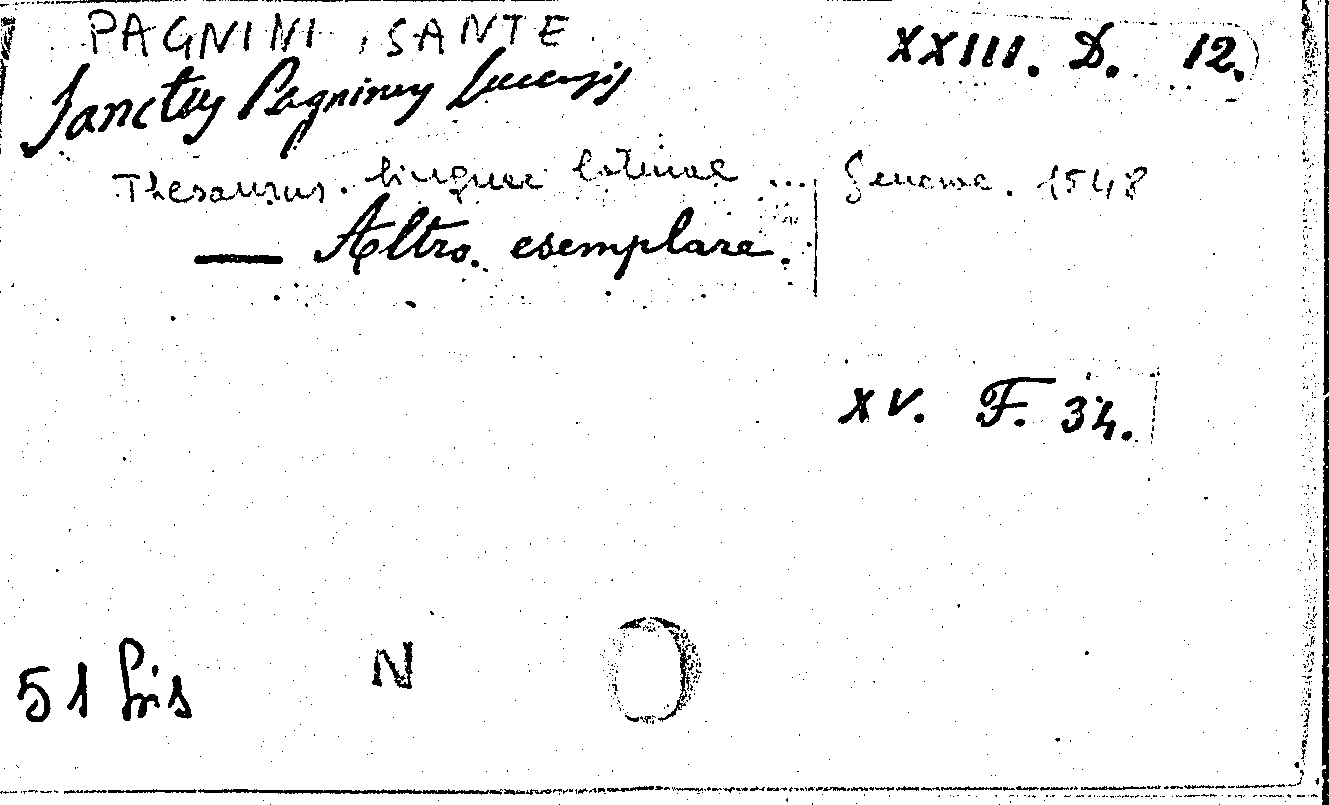 PAGNINI, SANTE
XXIII. D. 12.
Sanctus Pagninus Lucensis
Thesaurus linguae latinae ... Genevae. 1548
— Altro. esemplare.
XV. F. 34.
51 bis
N